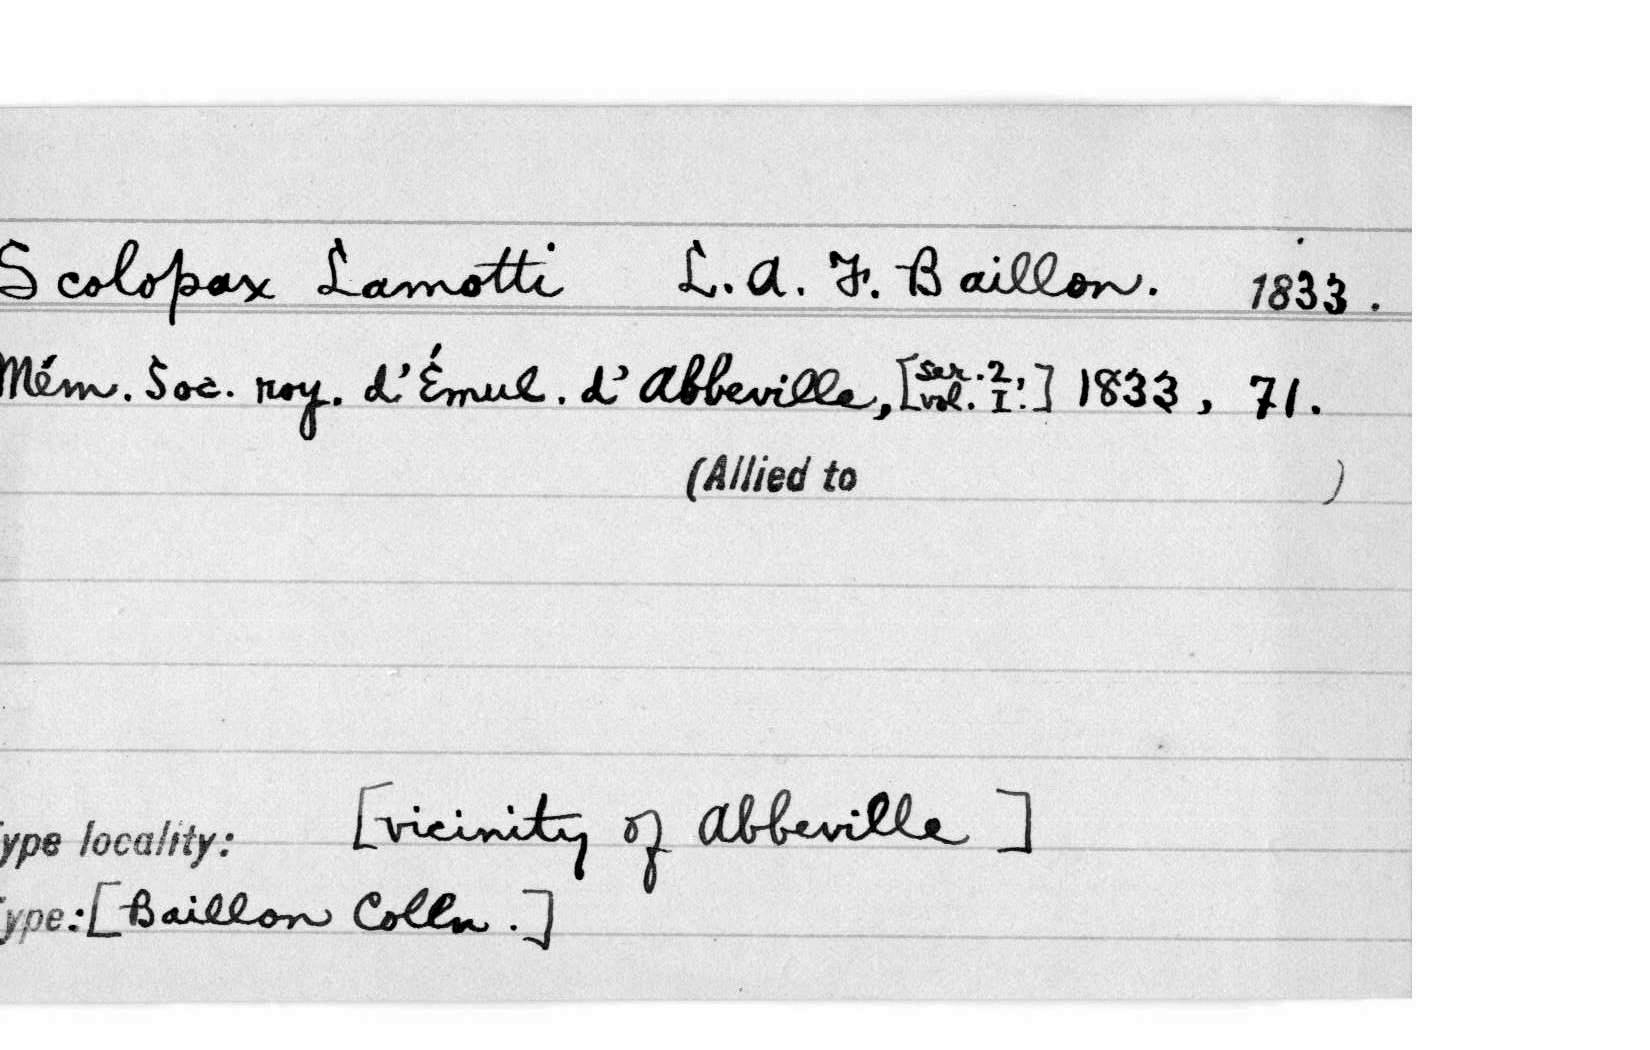 Scolopax Lamotti L. A. F. Baillon. 1833.
Mém. Soc. roy. d'Émul. d'Abbeville, [ser. 2, vol. I.] 1833, 71.
(Allied to )
ype locality: [vicinity of Abbeville]
ype: [Baillon Colln.]